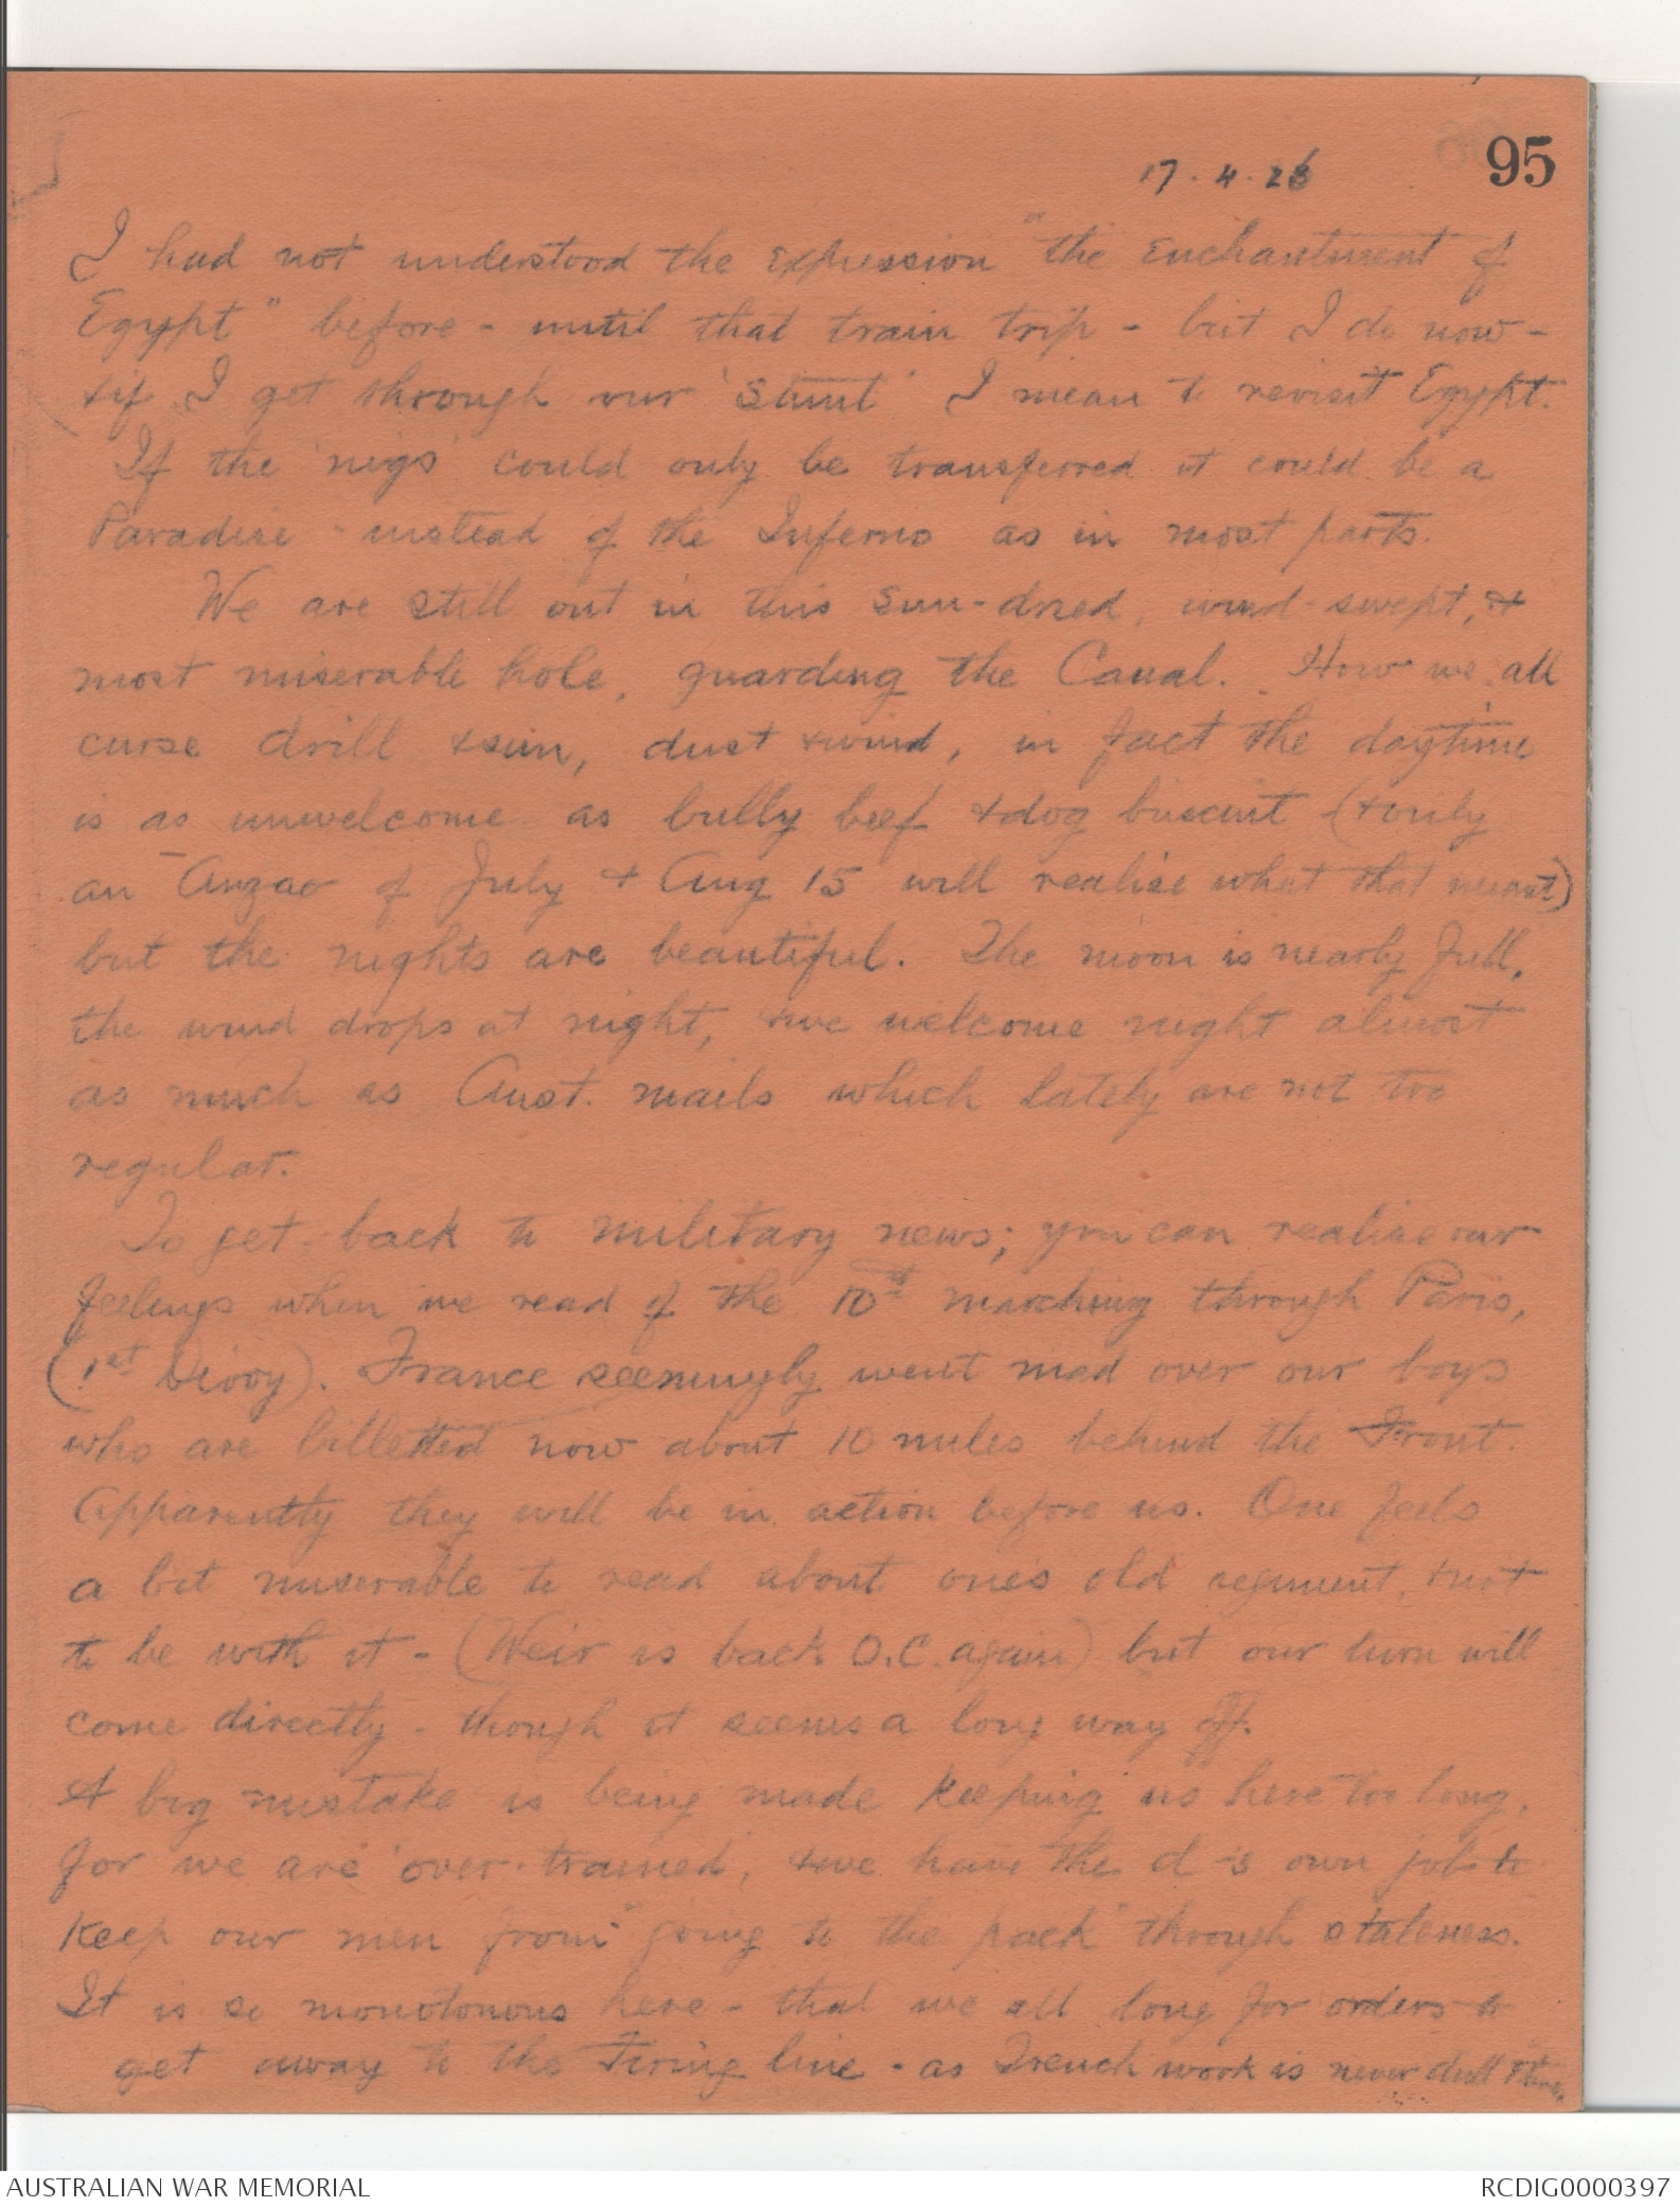 95
17.4.16
I had not understood the expression "the enchantment of
Egypt" before - until that train trip - but I do now -
& if I get through our 'stunt' I mean to revisit Egypt.
If the 'nigs' could only be transferred it could be a
Paradise - instead of the Inferno as in most parts.
We are still out in this sun-dried, wind-swept, &
most miserable hole, guarding the Canal. How we all
curse drill & sun, dust & wind, in fact the daytime
is as unwelcome as bully beef & dog biscuit (& only
an Anzac of July & Aug 15 will realise what that meant)
but the nights are beautiful. The moon is nearly full,
the wind drops at night, & we welcome night almost
as much as Aust. mails which lately are not too
regular.
To get back to military news; you can realise our
feelings when we read of the 10th marching through Paris,
(1st Divvy). France seemingly went mad over our boys
who are billetted now about 10 miles behind the Front.
Apparently they will be in action before us. One feels
a bit miserable to read about one's old regiment, & not
to be with it - (Weir is back O.C. again) but our turn will
come directly - though it seems a long way off.
A big mistake is being made keeping us here too long,
for we are 'over-trained', & we have the d-'s own job to
keep our men from "going to the pack" through staleness.
It is so monotonous here - that we all long for orders to
get away to the Firing line - as Trench work is never dull
AUSTRALIAN WAR MEMORIAL
RCDIG0000397